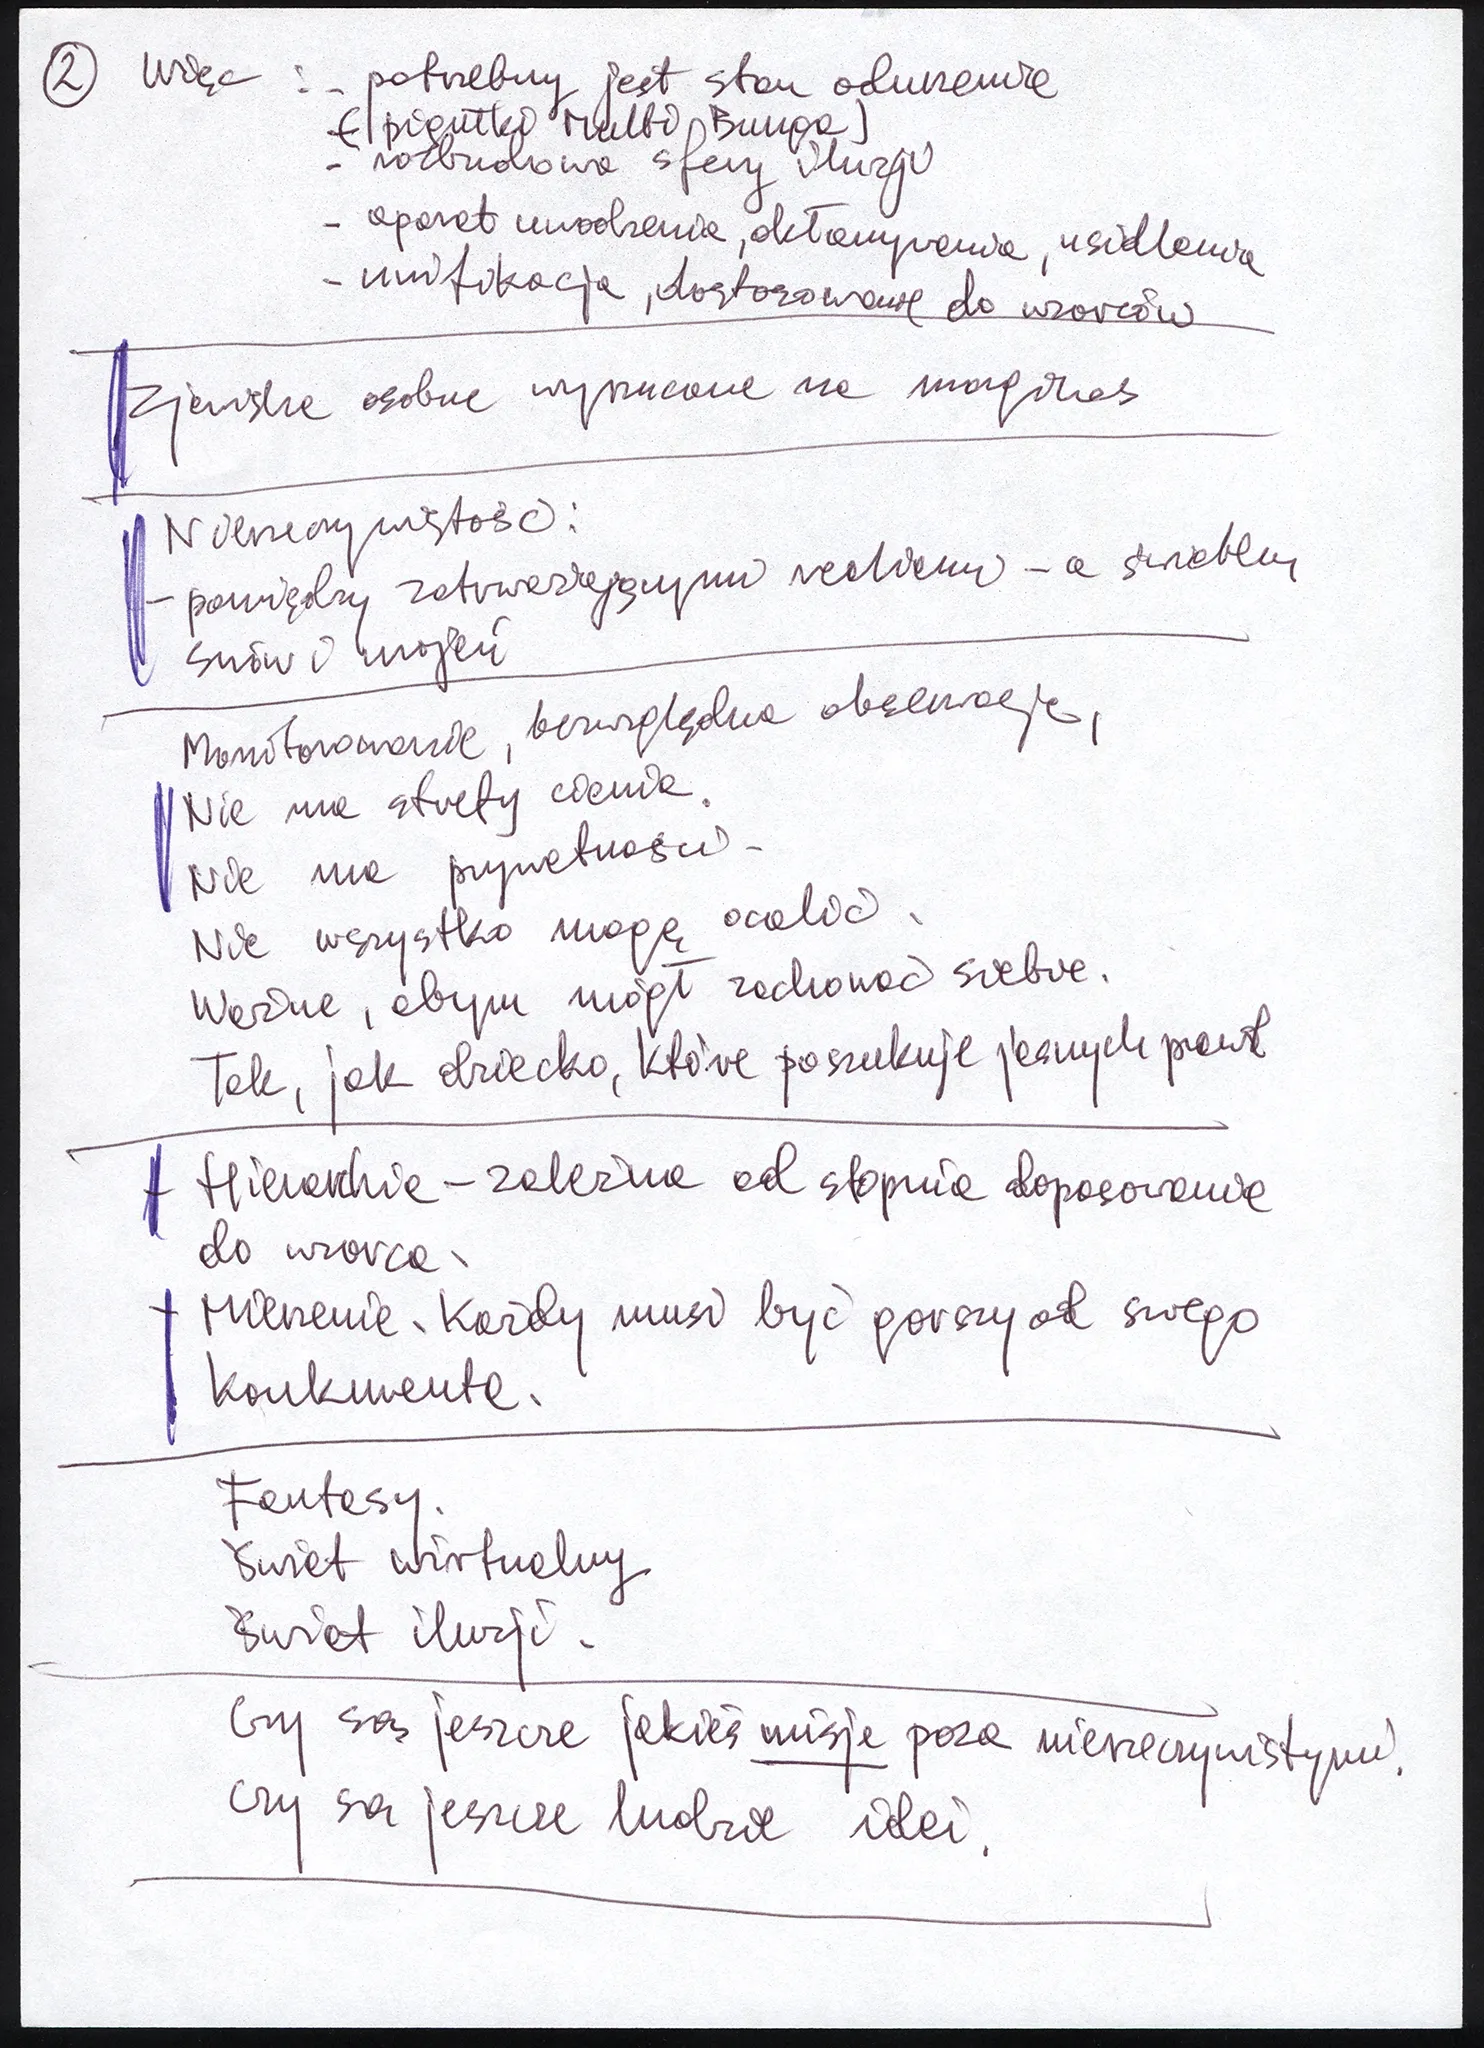 ② Więc : - potrzebny jest stan odurzenia
(pigułki Multi Bunga)
- rozbudowa sfery iluzji
- aparat uwodzenia, okłamywania, usidlania
- unifikacja, dostosowanie do wzorców
Zjawiska osobne wyrzucane na margines
Nierzeczywistość:
- pomiędzy zatrważającymi realiami - a światem
snów i wojen
Monitorowanie, bezwzględna obserwacja,
Nie ma strefy cienia.
Nie ma prywatności -
Nie wszystko mogę ocalić.
Ważne, abym mógł zachować siebie.
Tak, jak dziecko, które poszukuje jasnych prawd
+ Hierarchia - zależna od stopnia dopasowania
do wzorca.
+ Mierzenie. Każdy musi być gorszy od swego
konkurenta.
Fantasy.
Świat wirtualny
Świat iluzji.
Czy są jeszcze jakieś misje poza nierzeczywistymi.
Czy są jeszcze ludzie idei.